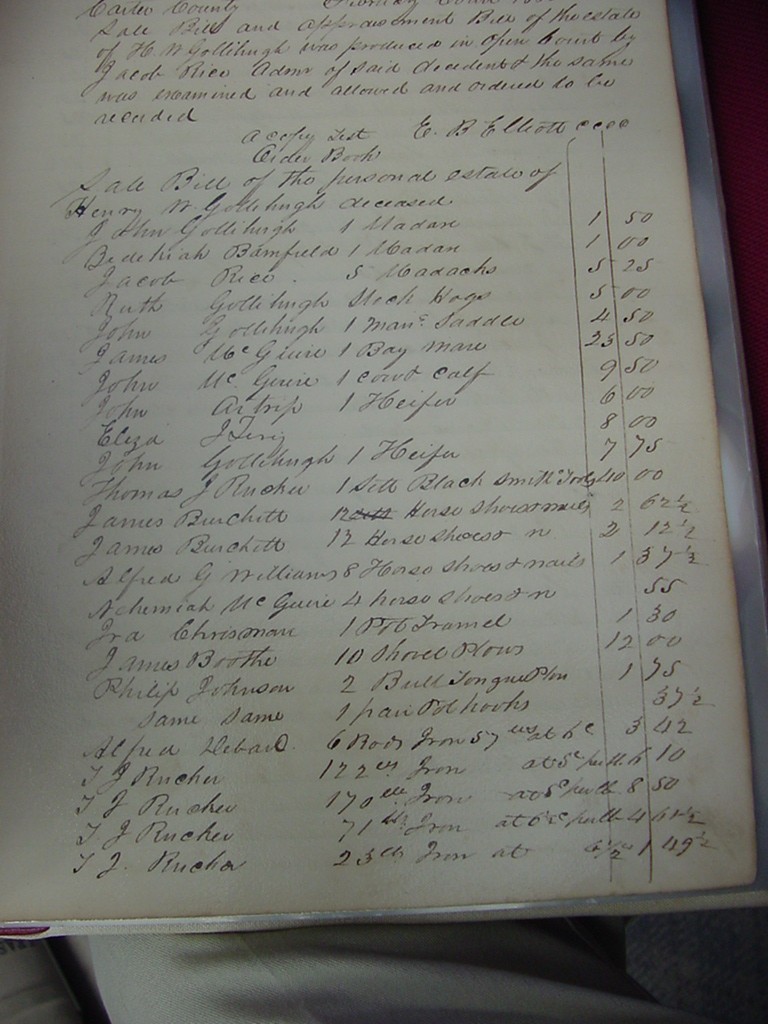 Carter County
Sale Bill and appraisment Bill of the estate
of H. W Gollihugh was produced in Open Court by
Jacob Rice Admr of said decedent & the same
was examined and allowed and ordered to be
recorded
a copy Test E. B Elliott cccc
Order Book
Sale Bill of the personal estate of
Henry W. Gollihugh deceased
John Gollihugh 1 1 50
Bedehiah Bamfield 1 1 00
Jacob Rice 5 5 25
Ruth Gollihugh Stock Hogs 5 00
John Gollihugh 1 Mans Saddle 4 50
James McGuire 1 Bay Mare 23 50
John Mc Guire 1 cow & calf 9 50
John Artrip 1 Heifer 6 00
Eliza 8 00
John Gollihugh 1 Heifer 7 75
Thomas J Rucker 1 Sett Black Smith Tools 40 00
James Burchett 12 Horse shoes & nails 2 62½
James Burchett 12 Horse shoes & n 2 12½
Alfred G Williams 8 Horse shoes & nails 1 37½
Nehemiah McGuire 4 horse shoes & n 55
Ira Chrisman 1 Pot Tramel 1 30
James Boothe 10 Shovel Plows 12 00
Philip Johnson 2 Bull Tongue Plou 1 75
same same 1 pair Pot hooks 37½
Alfred 6 Rods Iron 57 lbs at 6c 3 42
T J Rucker 122 lbs Iron at 5c per lb 6 10
T J Rucker 170 lbs Iron at 5c per lb 8 50
T J Rucker 71 lbs Iron at 6½c per lb 4 61½
T J. Rucker 23 lbs Iron at 6½c 1 49½